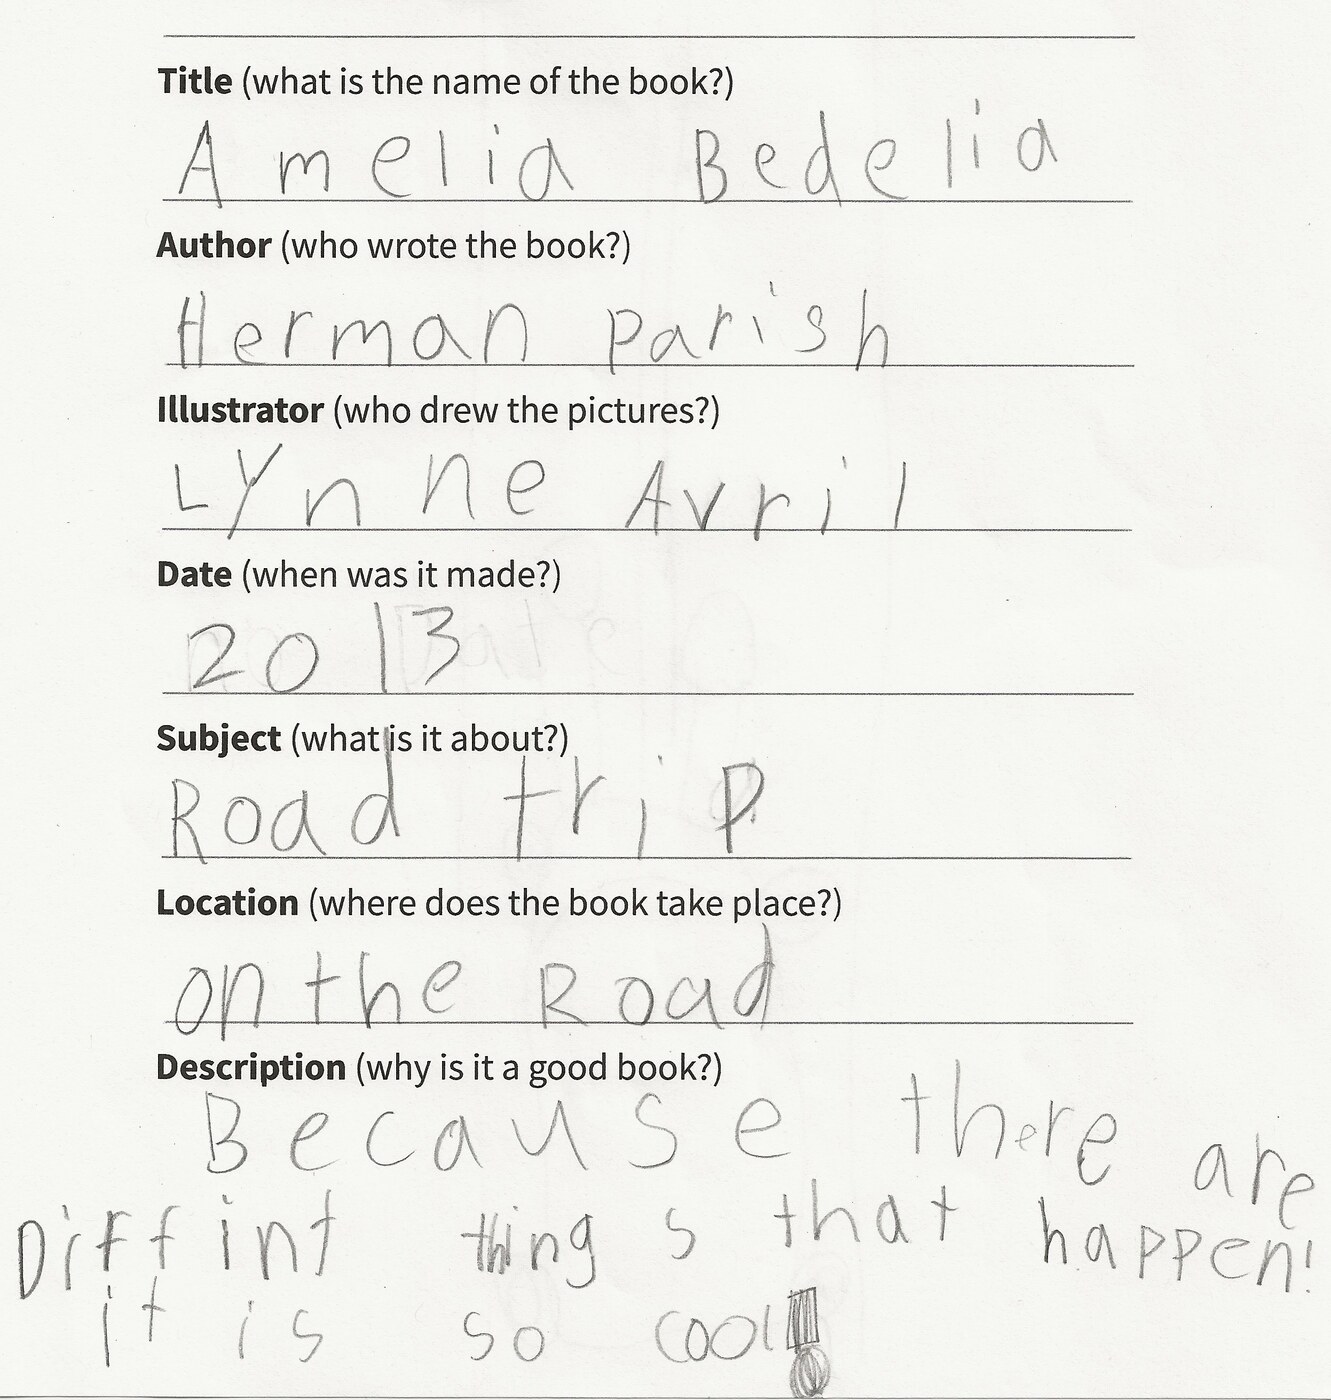 Title (what is the name of the book?)
Amelia Bedelia
Author (who wrote the book?)
Herman Parish
Illustrator (who drew the pictures?)
Lynne Avril
Date (when was it made?)
2013
Subject (what is it about?)
Road trip
Location (where does the book take place?)
on the Road
Description (why is it a good book?)
Because there are
Diffint things that happen!
it is so cool!